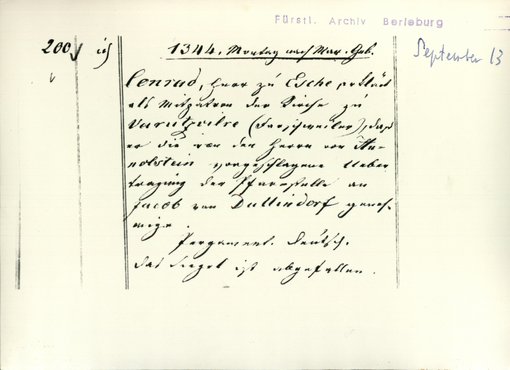 Fürstl. Archiv Berleburg
September 13
200 1344, Montag nach Mar. Geb.
Conrad, Herr zu Esche erklärt
als Mitpatron der Kirche zu
(Forschweiler), dass
er die von den Herrn von Hu-
nolstein vorgeschlagene Ueber
tragung der Pfarrstelle an
Jacob von Dullindorf geneh-
mige.
Pergament. Deutsch.
Das Siegel ist abgefallen.